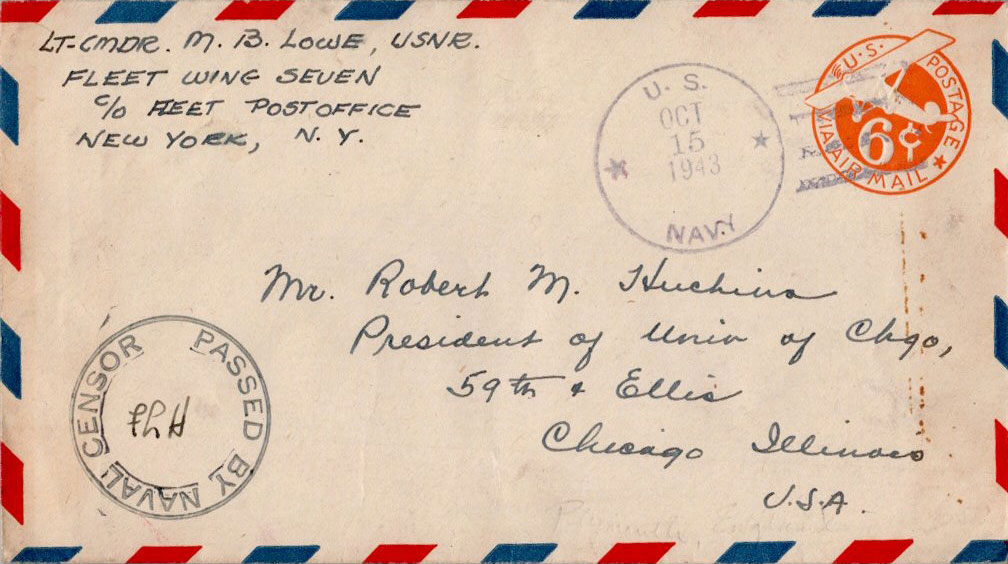 LT-CMDR. M. B. LOWE, USNR.
FLEET WING SEVEN
C/O FLEET POSTOFFICE
NEW YORK, N. Y.
U. S.
OCT
15
1943
NAVY
U.S. POSTAGE
6¢
VIA AIR MAIL
Mr. Robert M. Huchins
President of Univ of Chgo,
59th & Ellis
Chicago Illinois
U.S.A.
PASSED BY NAVAL CENSOR